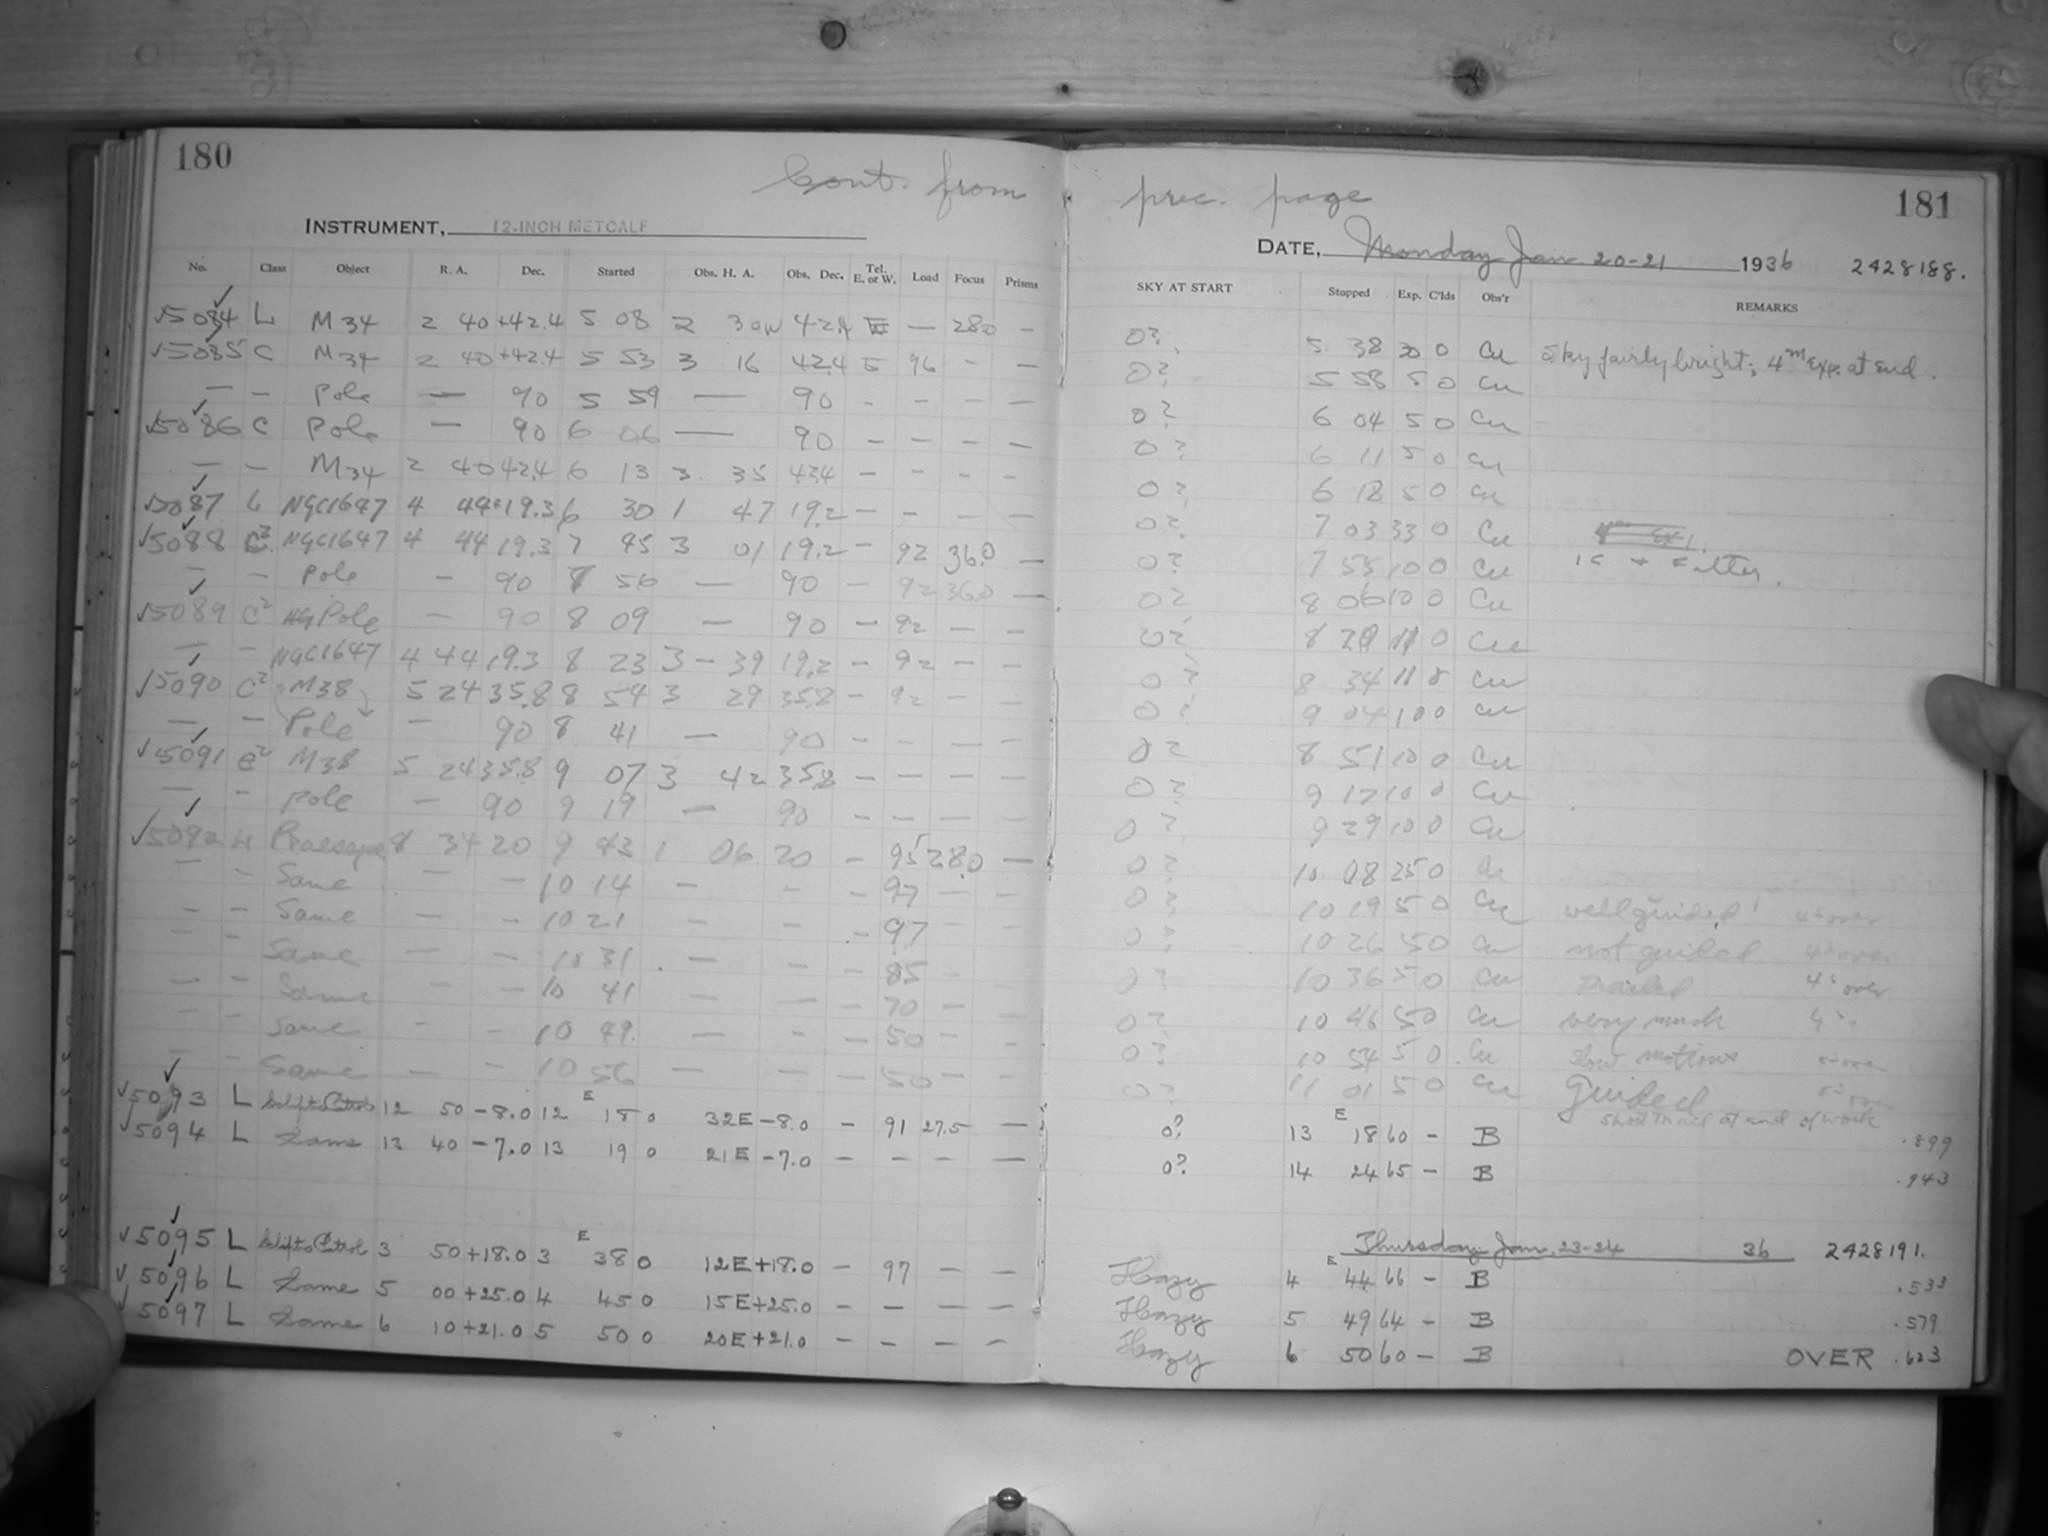 180
181
Cont. from prec. page
INSTRUMENT, 12-INCH METCALF
DATE, Monday Jan 20-21 1936 2428188.
No. Class Object R. A. Dec. Started Obs. H. A. Obs. Dec. Tel. E. or W. Load Focus Prisms SKY AT START Stopped Exp. C'lds Obs'r REMARKS
15084 L M34 2 40 +42.4 5 08 2 30W 42.4 — 280 – 0? 5 38 30 0 Cu Sky fairly bright; 4m Exp. at end.
15085 C M34 2 40 +42.4 5 53 3 16 42.4 96 – – 0? 5 58 5 0 Cu
— – Pole — 90 5 59 — 90 – – – – 0? 6 04 5 0 Cu
15086 C Pole — 90 6 06 — 90 – – – – 0? 6 11 5 0 Cu
— – M34 2 40 42.4 6 13 3 35 42.4 – – – – 0? 6 18 5 0 Cu
15087 L NGC1647 4 44 +19.3 6 30 1 47 19.2 – – – – 0? 7 03 33 0 Cu
15088 C2 NGC1647 4 44 19.3 7 45 3 01 19.2 – 92 36.0 – 0? 7 55 10 0 Cu Filter.
– – Pole – 90 56 — 90 – 92 36.0 – 0? 8 06 10 0 Cu
15089 C2 Pole – 90 8 09 — 90 – 92 – – 0? 8 20 11 0 Cu
— – NGC1647 4 44 19.3 8 23 3 – 39 19.2 – 92 – – 0? 8 34 11 Cu
15090 C2 M38 5 24 35.8 8 54 3 29 35.8 – 92 – – 0? 9 04 10 0 Cu
— – Pole – 90 8 41 – 90 – – – – 0? 8 51 10 0 Cu
15091 C2 M38 5 24 35.8 9 07 3 42 35.8 – – – – 0? 9 17 10 0 Cu
— – Pole – 90 9 19 – 90 – – – – 0? 9 29 10 0 Cu
15092 L Praesepe 8 34 20 9 43 1 06 20 – 95 28.0 – 0? 10 08 25 0 Cu
– – Same – – 10 14 – – – 97 – – 0? 10 19 5 0 Cu well guided
– – Same – – 10 21 – – – 97 – – 0? 10 26 5 0 Cu not guided
– – Same – – 10 31 – – – 85 – – 0? 10 36 5 0 Cu trailed
– – Same – – 10 41 – – – 70 – – 0? 10 46 5 0 Cu very much
– – Same – – 10 49 – – – 50 – – 0? 10 54 5 0 Cu slow motions
– – Same – – 10 56 – – – 50 – – 0? 11 01 5 0 Cu Guided
short trail at end of work
15093 L Patrol 12 50 –8.0 12 E 18 0 32E –8.0 – 91 27.5 – 0? 13 E 18 60 – B .899
15094 L Same 13 40 –7.0 13 19 0 21E –7.0 – – – – 0? 14 24 65 – B .943
Thursday Jan. 23-24 36 2428191.
15095 L Patrol 3 50 +18.0 3 E 38 0 12E +18.0 – 97 – – Hazy 4 E 44 66 – B .533
15096 L Same 5 00 +25.0 4 45 0 15E +25.0 – – – – Hazy 5 49 64 – B .579
15097 L Same 6 10 +21.0 5 50 0 20E +21.0 – – – – Hazy 6 50 60 – B OVER .623